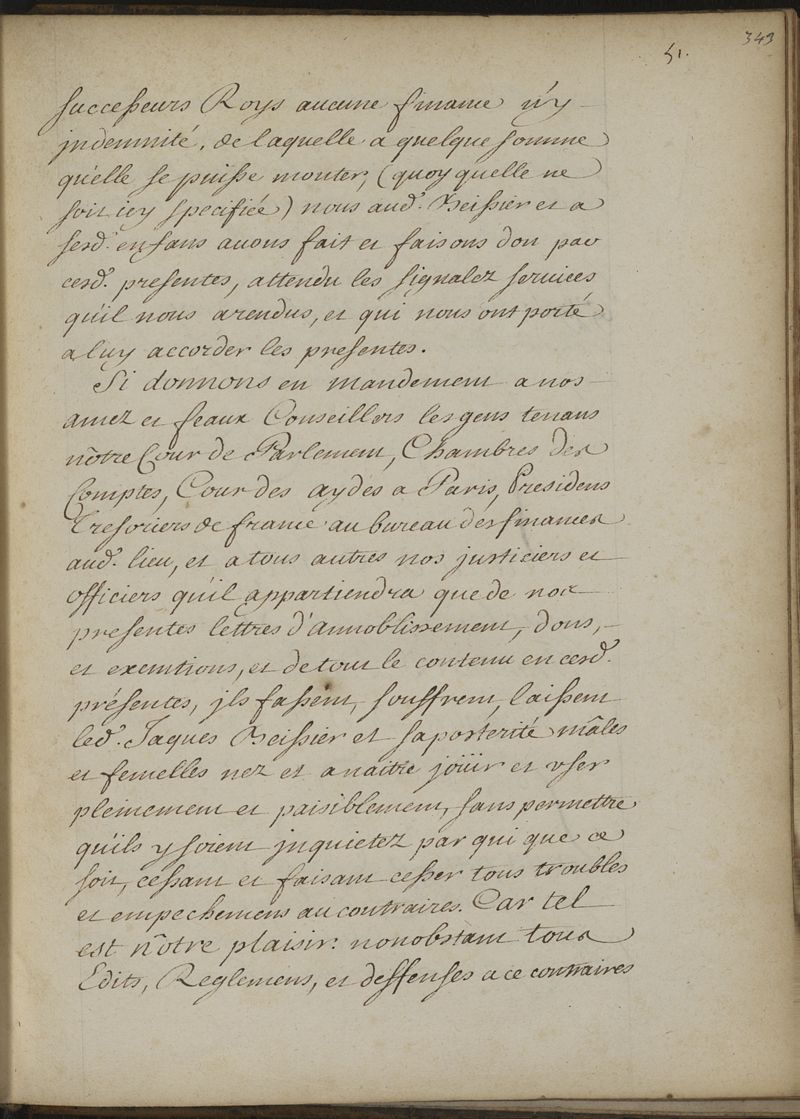 343
51.
successeurs Roys aucune finance n'y
jndemnité, de laquelle a quelque somme
qu'elle se puisse monter, (quoy quelle ne
soit icy specifiée) nous aud.
Teissier et a
serd. enfans auons fait et faisons don par
cesd. presentes, attendu les signalez seruices
qu'il nous a rendus, et qui nous ont porté
a luy accorder les presentes.
Si donnons en mandement a nos
amez et feaux Conseillers les gens tenans
nôtre Cour de Parlement, Chambres des
Comptes, Cour des aydes a Paris, Presidens
Tresoriers de france au bureau des finances
aud. lieu, et a tous autres nos justiciers et
officiers qu'il appartiendra que de nos
presentes lettres d'annoblissement, dons,
et exemtions, et de tout le contenu en cesd.
présentes, jls fassent, souffrent, laissent
led. Jaques Teissier et sa posterité mâles
et femelles nez et a naitre joüir et vser
pleinement et paisiblement, sans permettre
qu'ils y soient jnquietez par qui que ce
soit, cessant et faisant cesser tous troubles
et empechemens au contraires. Car tel
est nôtre plaisir: nonobstant tous
Edits, Reglemens, et deffenses a ce contraires